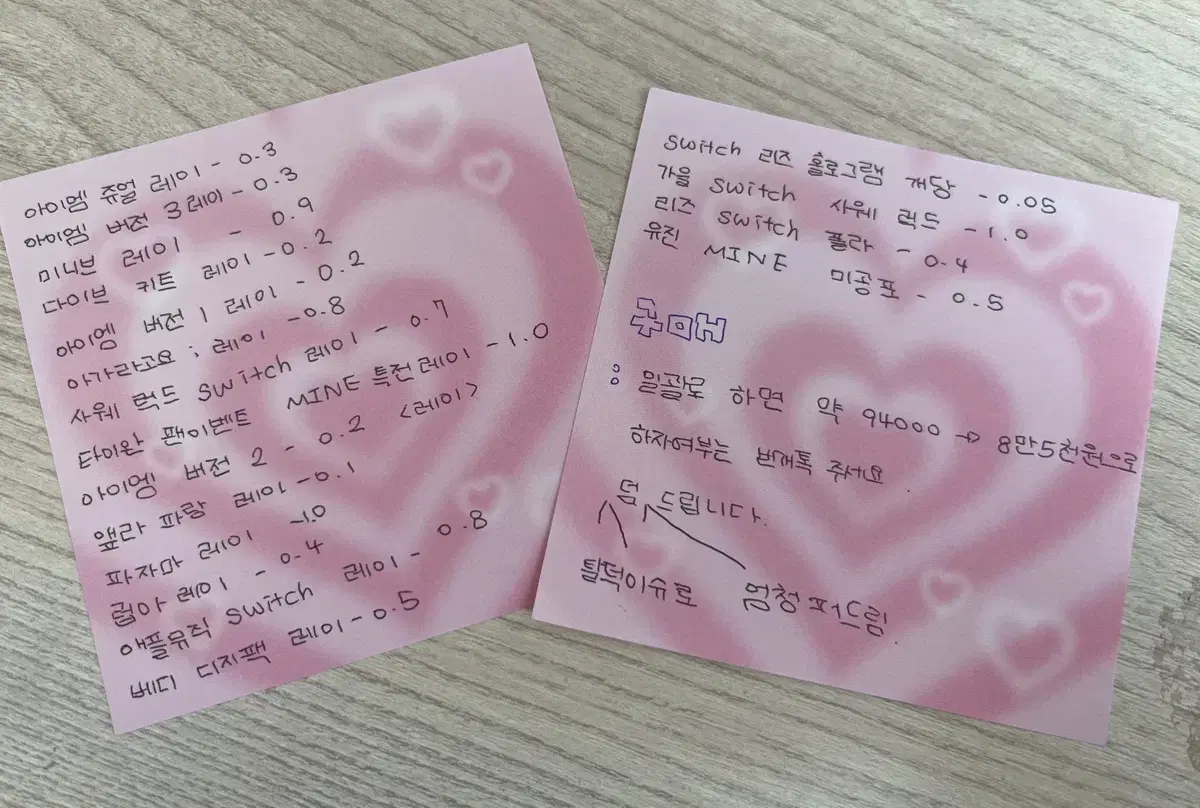 아이엠 쥬얼 레이 - 0.3
아이엠 버전 3 레이 - 0.3
미니브 레이 - 0.9
다이브 키트 레이 - 0.2
아이엠 버전 1 레이 - 0.2
아가라고요; 레이 - 0.8
사웨 럭드 switch 레이 - 0.7
타이완 팬이벤트 MINE 특전 레이 - 1.0
아이엠 버전 2 - 0.2 <레이>
앺라 파랑 레이 - 0.1
파자마 레이 - 1.0
럽아 레이 - 0.4
애플뮤직 switch 레이 - 0.8
베디 디지팩 레이 - 0.5
switch 리즈 홀로그램 개당 - 0.05
가을 switch 사웨 럭드 - 1.0
리즈 switch 폴라 - 0.4
유진 MINE 미공포 - 0.5
구매
: 일괄로 하면 약 94000 → 8만5천원으로
하자여부는 번개톡 줘요.
덤 드립니다.
탈덕이슈로 엄청 퍼드림.